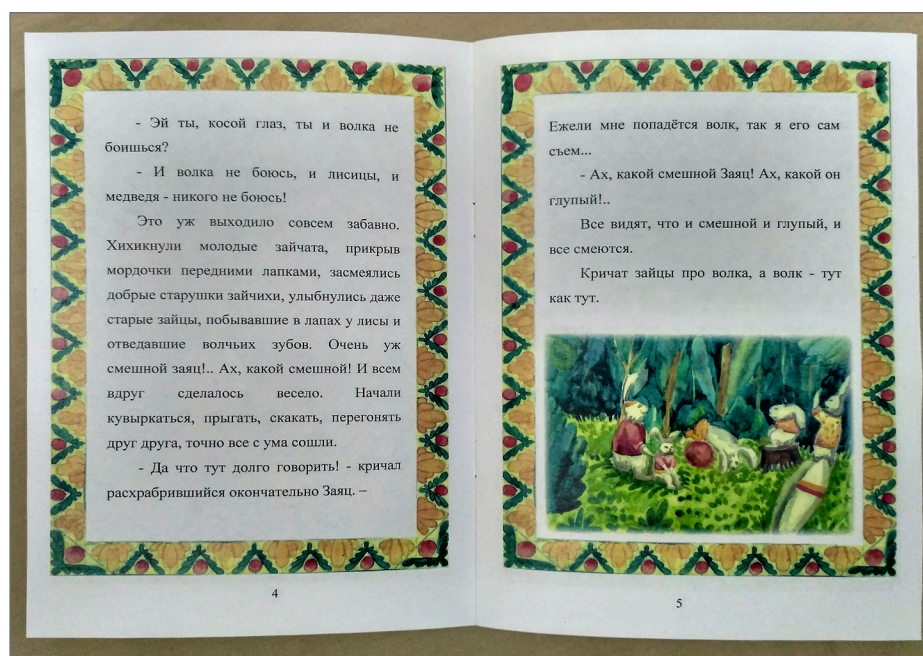 - Эй ты, косой глаз, ты и волка не
боишься?
- И волка не боюсь, и лисицы, и
медведя - никого не боюсь!
Это уж выходило совсем забавно.
Хихикнули молодые зайчата, прикрыв
мордочки передними лапками, засмеялись
добрые старушки зайчихи, улыбнулись даже
старые зайцы, побывавшие в лапах у лисы и
отведавшие волчьих зубов. Очень уж
смешной заяц!.. Ах, какой смешной! И всем
вдруг сделалось весело. Начали
кувыркаться, прыгать, скакать, перегонять
друг друга, точно все с ума сошли.
- Да что тут долго говорить! - кричал
расхрабрившийся окончательно Заяц. –
4
Ежели мне попадётся волк, так я его сам
съем...
- Ах, какой смешной Заяц! Ах, какой он
глупый!..
Все видят, что и смешной и глупый, и
все смеются.
Кричат зайцы про волка, а волк - тут
как тут.
5